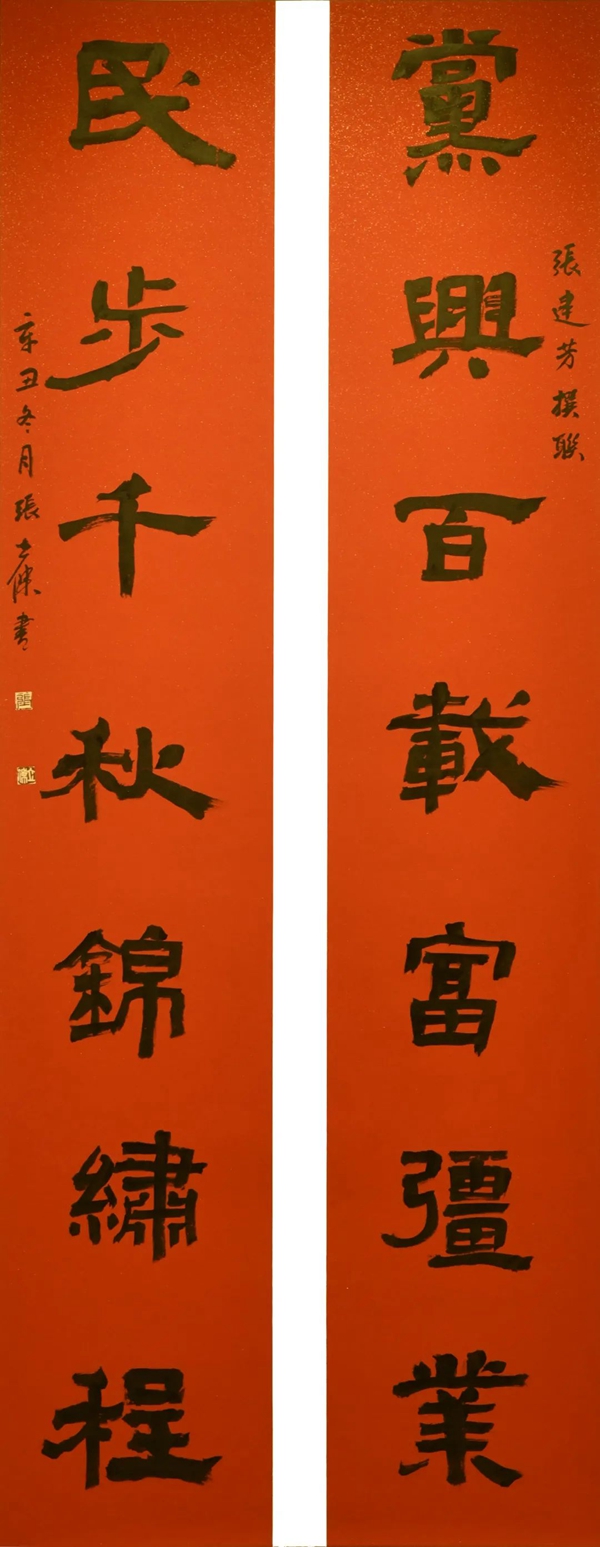 黨興百載富彊業
張建芳撰聯
民步千秋錦繡程
辛丑冬月張士傑書